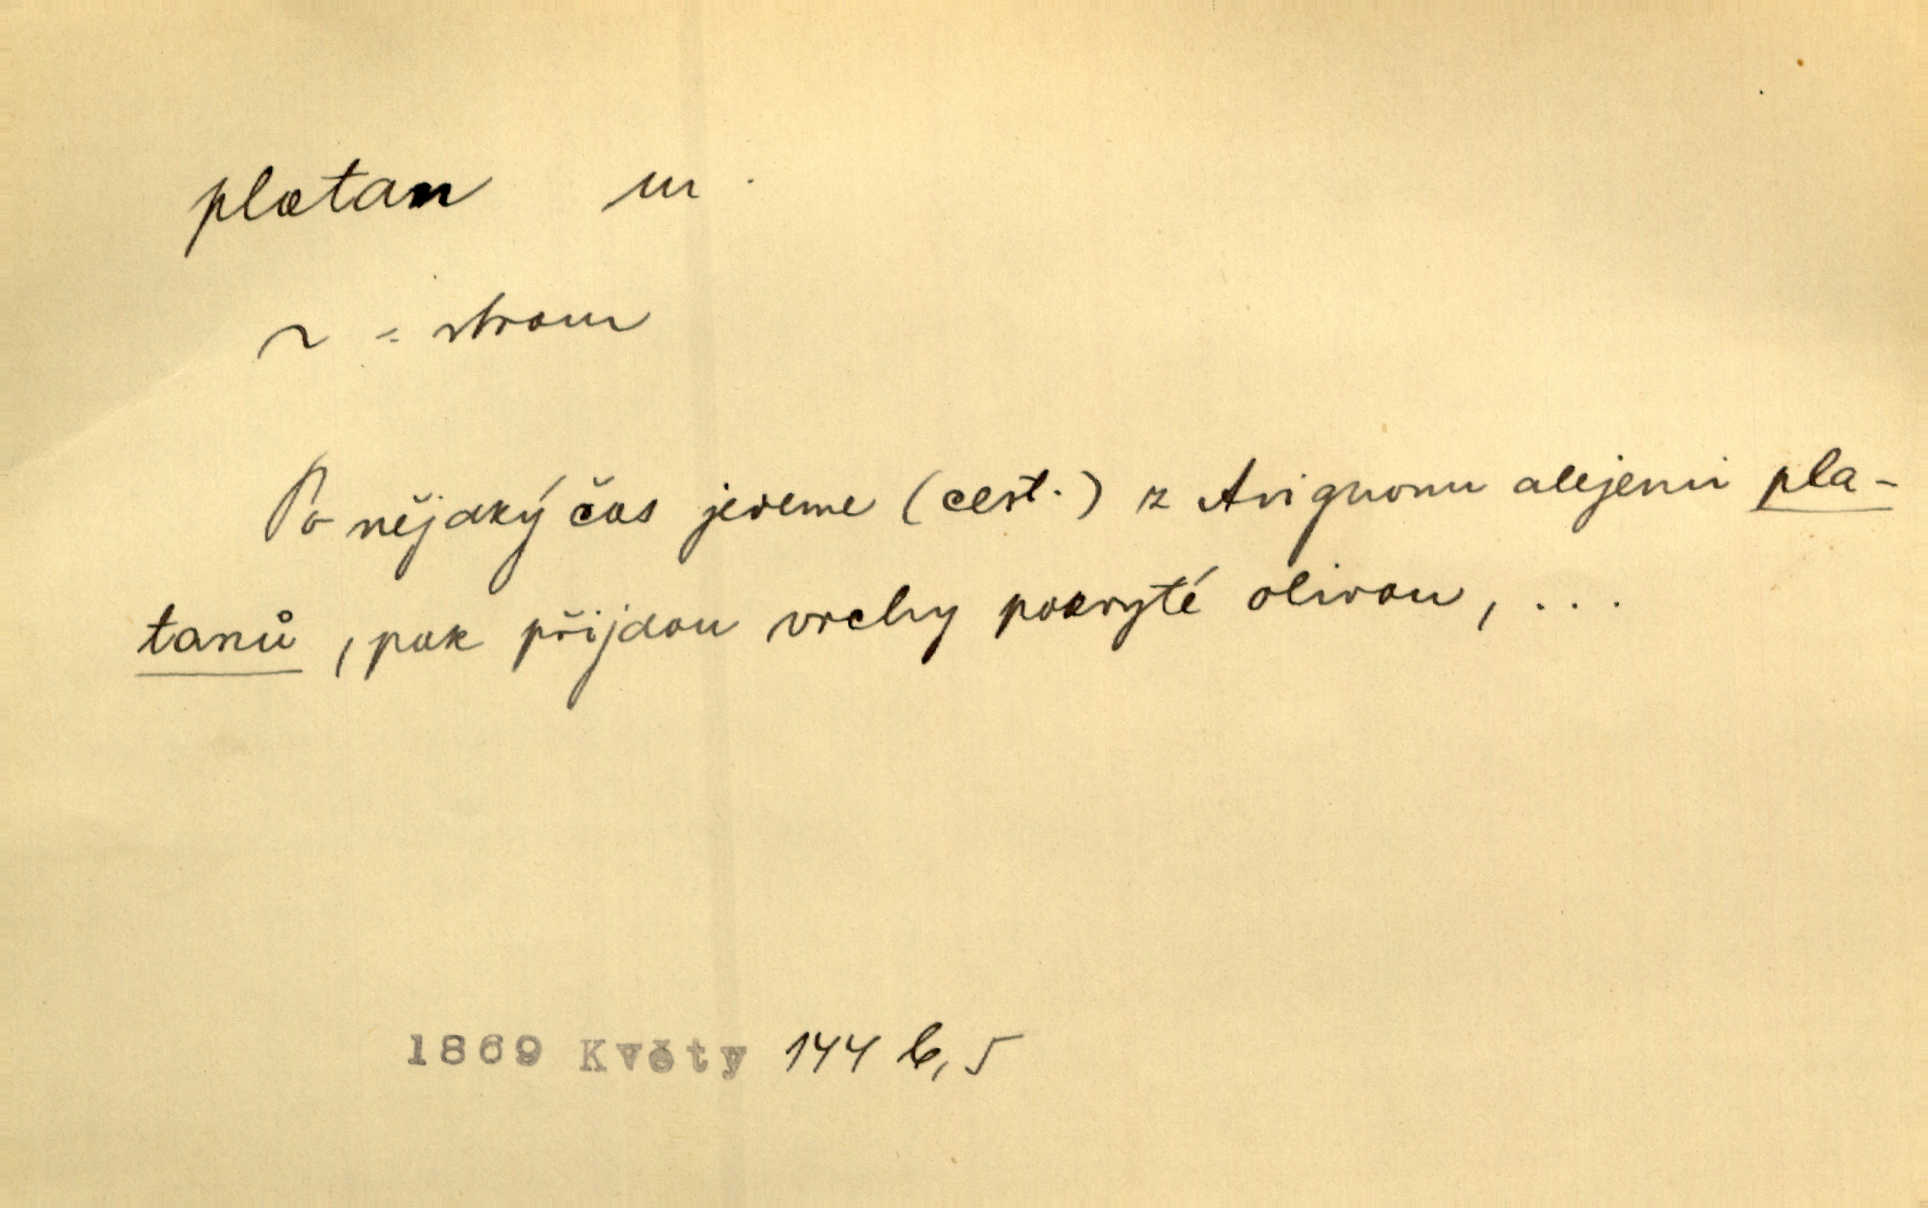 platan m.
~ = strom
Po nějaký čas jedeme (cest.) z Avignonu alejemi pla-
tanů, pak přijdou vrchy pokryté olivou, ...
1869 Květy 144 b, 5